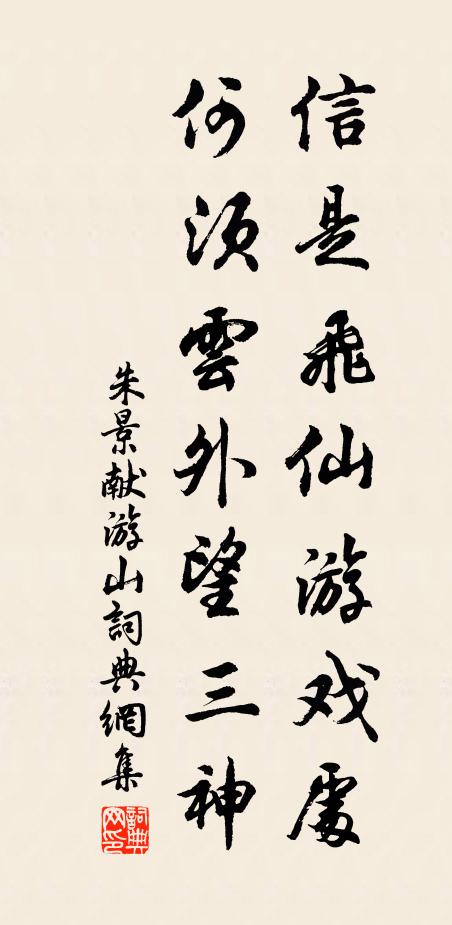 信是飛仙游戏處
何須雲外望三神
朱景献游山詞典網集
詞典网印